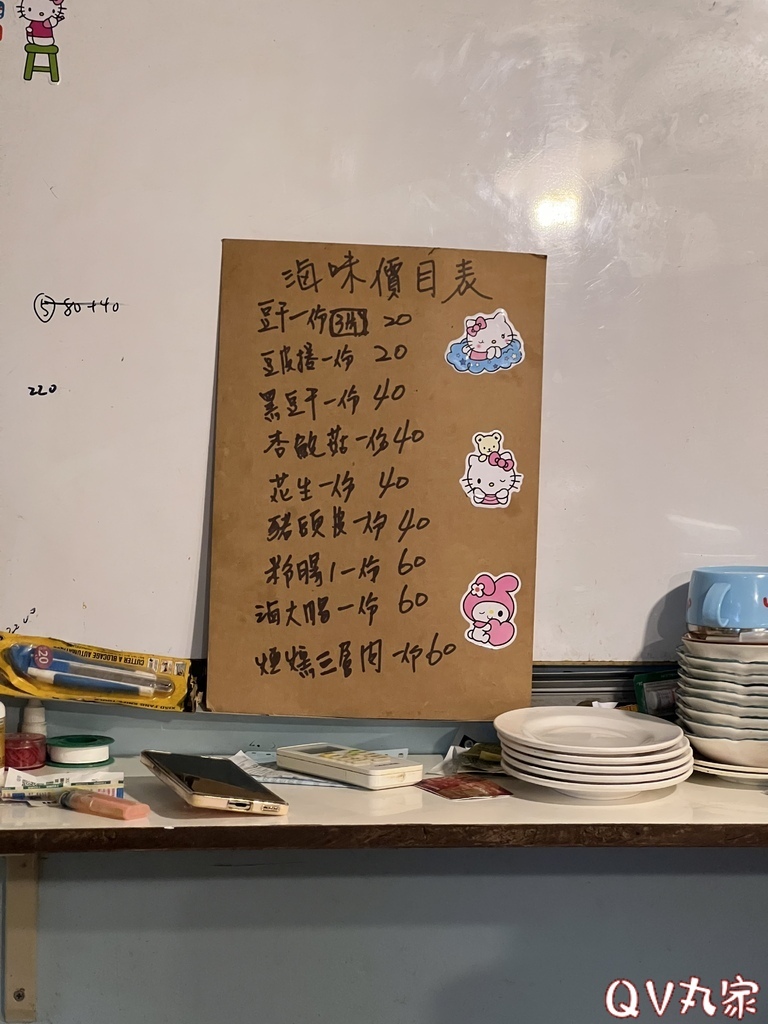 滷味價目表
豆干一份(3片) 20
豆皮捲一份 20
黑豆干一份 40
杏鮑菇一份40
花生一份 40
豬頭皮一份 40
米腸1一份 60
滷大腸一份 60
煙燻三層肉一份60
⑤ 80+40
220
CUTTER & BLOCADE AUTOMATI
QV丸家